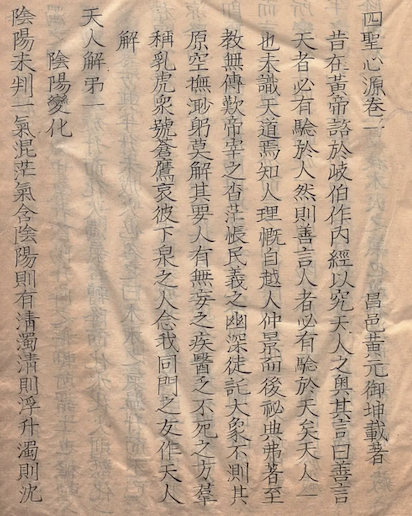 四聖心源卷一　昌邑黃元御坤載著
昔在黃帝諮於岐伯作內經以究天人之奧其言曰善言
天者必有騐於人然則善言人者必有騐於天矣天人一
也未識天道焉知人理慨自越人仲景而後祕典弗著至
教無傳歎帝宰之杳茫悵民義之幽深徒託大象不測其
原空撫渺躬莫解其要人有無妄之疾醫乏不死之方羣
稱乳虎衆號蒼鷹哀彼下泉之人念我同門之友作天人
解
天人解弟一
陰陽變化
陰陽未判一氣混茫氣含陰陽則有清濁清則浮升濁則沈